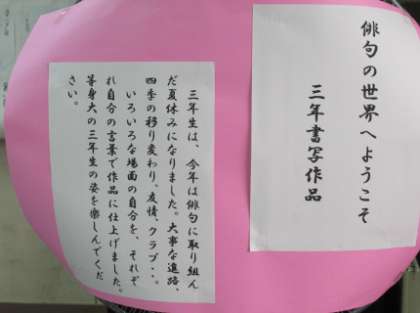 俳句の世界へようこそ
三年書写作品
三年生は、今年は俳句に取り組ん
だ夏休みになりました。大事な進路、
四季の移り変わり、友情、クラブ・・。
いろいろな場面の自分を、それぞ
れ自分の言葉で作品に仕上げました。
等身大の三年生の姿を楽しんでくだ
さい。